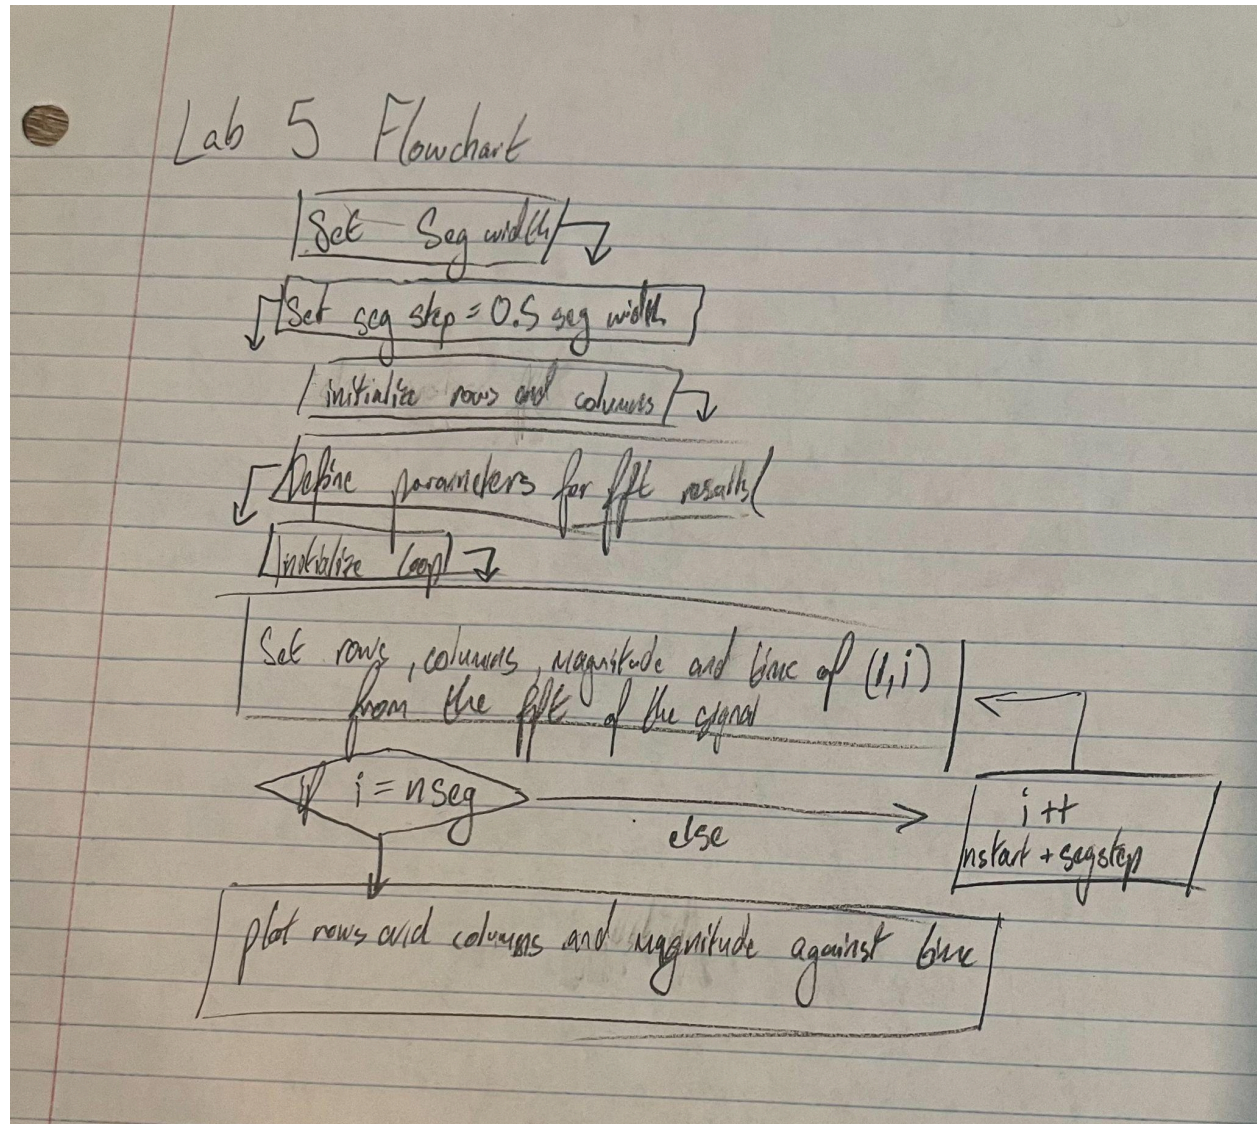 Lab 5 Flowchart
Set Seg width
Set seg step = 0.5 seg width
initialize rows and columns
Define parameters for fft results
initialize loop
Set rows, columns, magnitude and time of (1,i)
from the fft of the signal
if i = nseg
else
i ++
nstart + segstep
plot rows and columns and magnitude against time